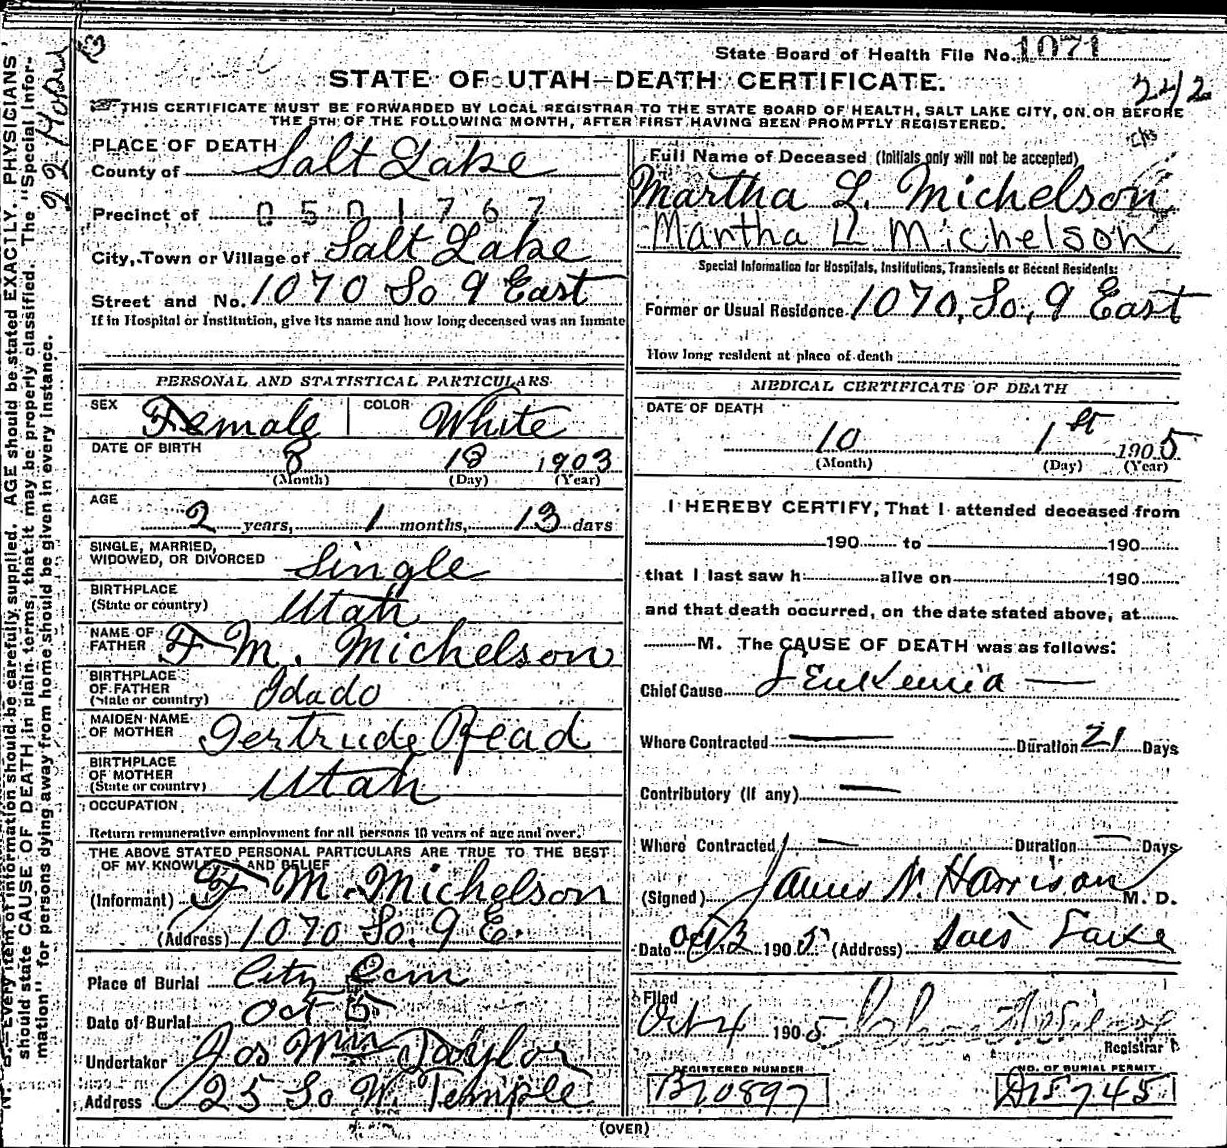 State Board of Health File No. 1071
242
STATE OF UTAH—DEATH CERTIFICATE.
THIS CERTIFICATE MUST BE FORWARDED BY LOCAL REGISTRAR TO THE STATE BOARD OF HEALTH, SALT LAKE CITY, ON OR BEFORE
THE 5TH OF THE FOLLOWING MONTH, AFTER FIRST HAVING BEEN PROMPTLY REGISTERED.
PLACE OF DEATH
County of Salt Lake
Precinct of 0501767
City, Town or Village of Salt Lake
Street and No. 1070 So 9 East
If in Hospital or Institution, give its name and how long deceased was an Inmate
PERSONAL AND STATISTICAL PARTICULARS
SEX Female COLOR White
DATE OF BIRTH 8 18 1903
(Month) (Day) (Year)
AGE
2 years, 1 months, 13 days
SINGLE, MARRIED,
WIDOWED, OR DIVORCED Single
BIRTHPLACE
(State or country) Utah
NAME OF
FATHER F M. Michelson
BIRTHPLACE
OF FATHER
(State or country) Idado
MAIDEN NAME
OF MOTHER Gertrude Read
BIRTHPLACE
OF MOTHER
(State or country) Utah
OCCUPATION
Return remunerative employment for all persons 10 years of age and over.
THE ABOVE STATED PERSONAL PARTICULARS ARE TRUE TO THE BEST
OF MY KNOWLE AND BELIEF
(Informant) F M. Michelson
(Address) 1070 So. 9 E.
Place of Burial City Cem
Date of Burial Oct 5
Undertaker Jos Wm Taylor
Address 25 So W. Temple
Full Name of Deceased (Initials only will not be accepted)
Martha L. Michelson
Martha L Michelson
Special Information for Hospitals, Institutions, Transients or Recent Residents:
Former or Usual Residence 1070, So, 9 East
How long resident at place of death
MEDICAL CERTIFICATE OF DEATH
DATE OF DEATH
10 1st 1905
(Month) (Day) (Year)
I HEREBY CERTIFY, That I attended deceased from
190 to 190
that I last saw h alive on 190
and that death occurred, on the date stated above, at
M. The CAUSE OF DEATH was as follows:
Chief Cause Leukemia —
Where Contracted — Duration 21 Days
Contributory (if any) —
Where Contracted — Duration — Days
(Signed) James N. Harrison M. D.
Date Oct 3 1905 (Address) Salt Lake
Filed
Oct 4 1905
Registrar
REGISTERED NUMBER
B10897
NO. OF BURIAL PERMIT
D15745
(OVER)
Every item of information should be carefully supplied. AGE should be stated EXACTLY. PHYSICIANS
should state CAUSE OF DEATH in plain terms, that it may be properly classified. The "Special Infor-
mation" for persons dying away from home should be given in every instance.